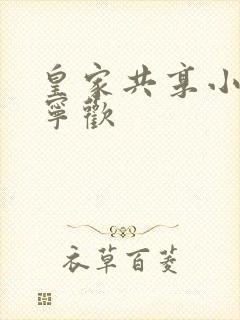 皇家共享小
寧歡
衣草百菱